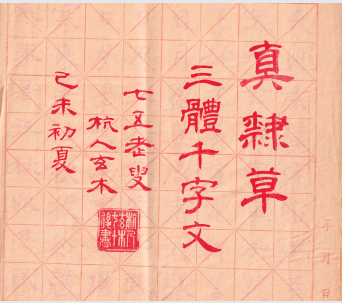 真隸草
三體千字文
七五老叟
杭人玄木
己未初夏
年月日